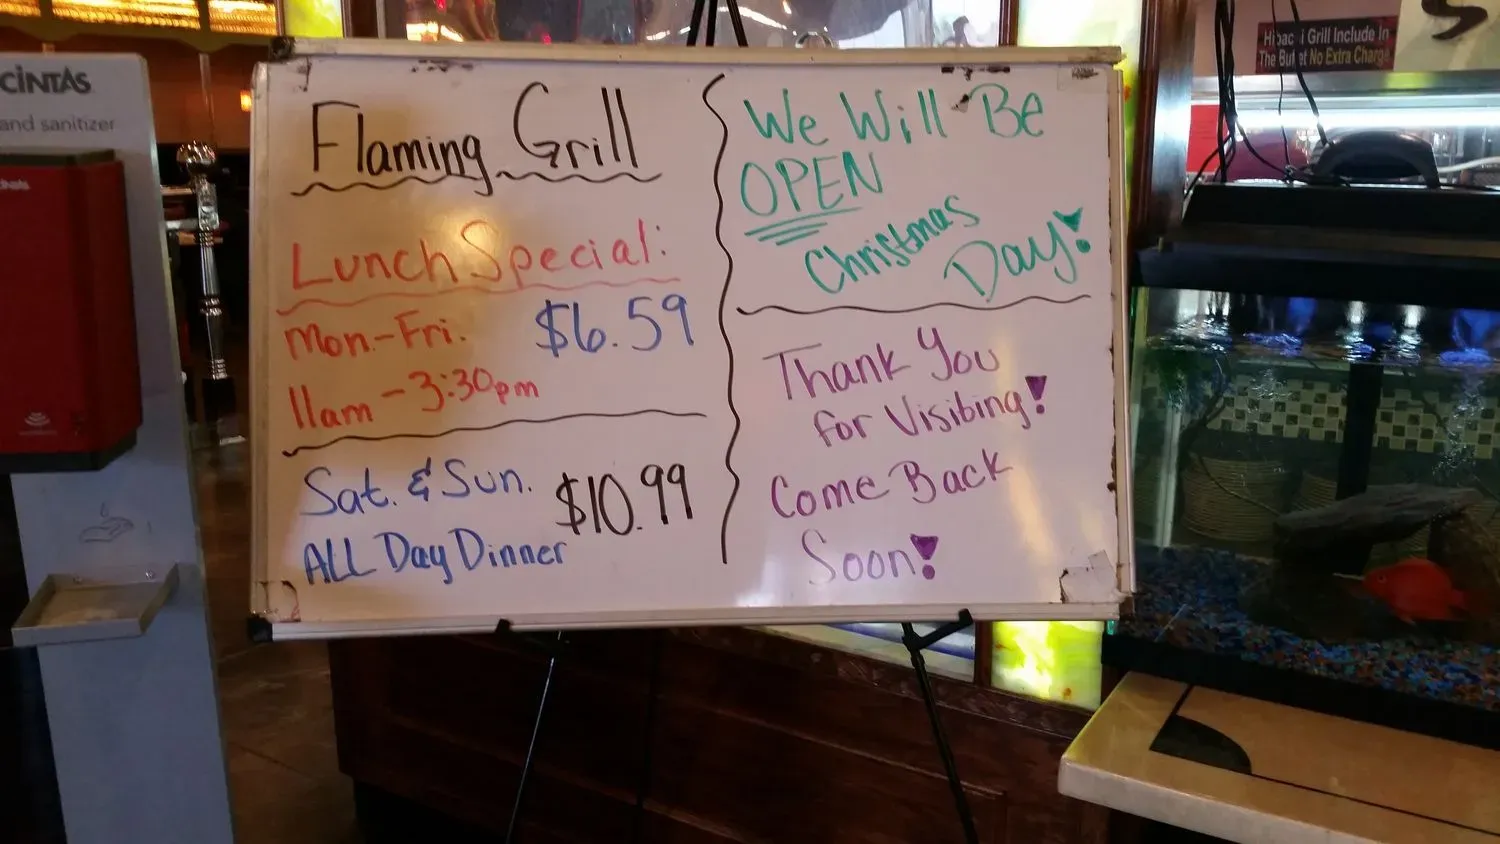 CINTAS
and sanitizer
Flaming Grill
Lunch Special:
Mon.-Fri. $6.59
11am - 3:30pm
Sat. & Sun. $10.99
ALL Day Dinner
We Will Be
OPEN
Christmas
Day!
Thank You
for Visibing!
Come Back
Soon!
Hibachi Grill Include In
The Buffet No Extra Charge